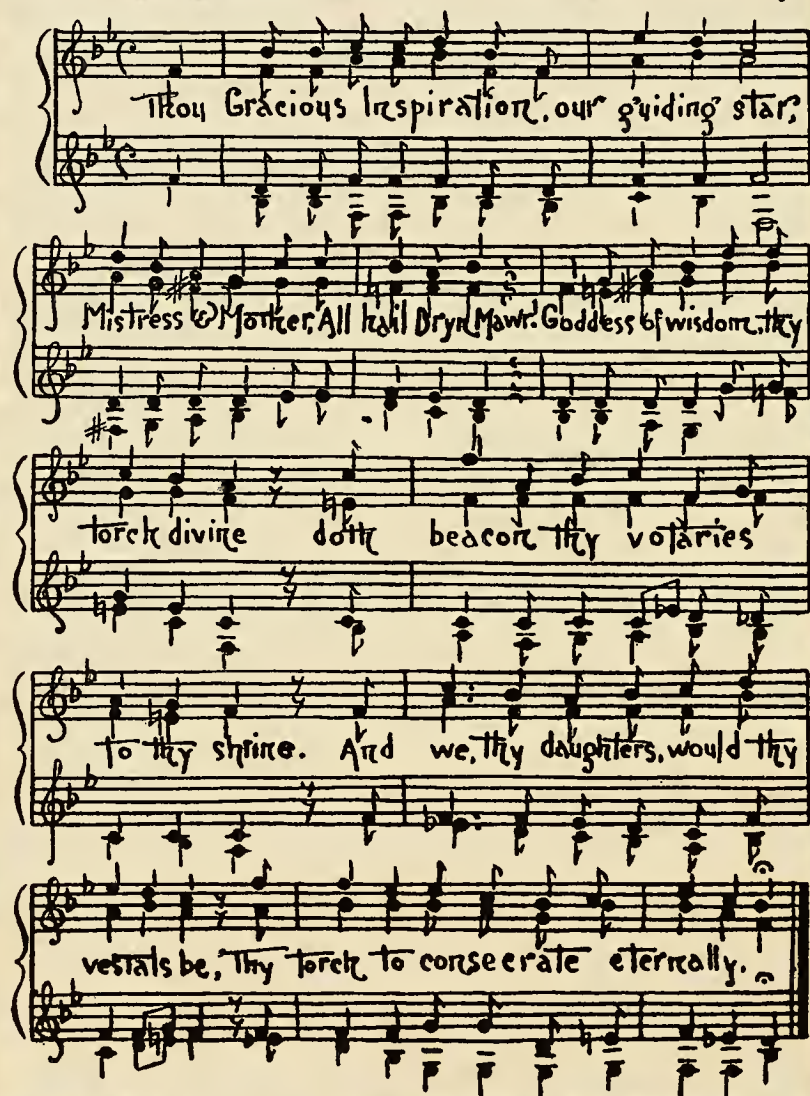 Thou Gracious Inspiration, our guiding star,
Mistress & Mother, All hail Bryn Mawr. Goddess of wisdom, thy
torch divine doth beacon thy votaries
to thy shrine. And we, thy daughters, would thy
vestals be, Thy torch to consecrate eternally.